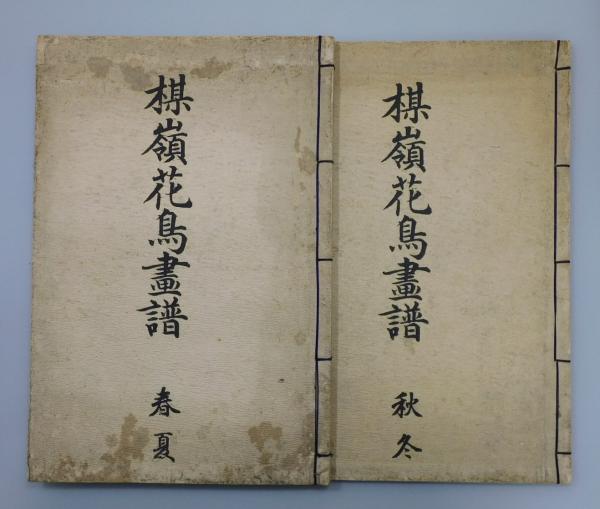 楳嶺花鳥畫譜
春夏
楳嶺花鳥畫譜
秋冬